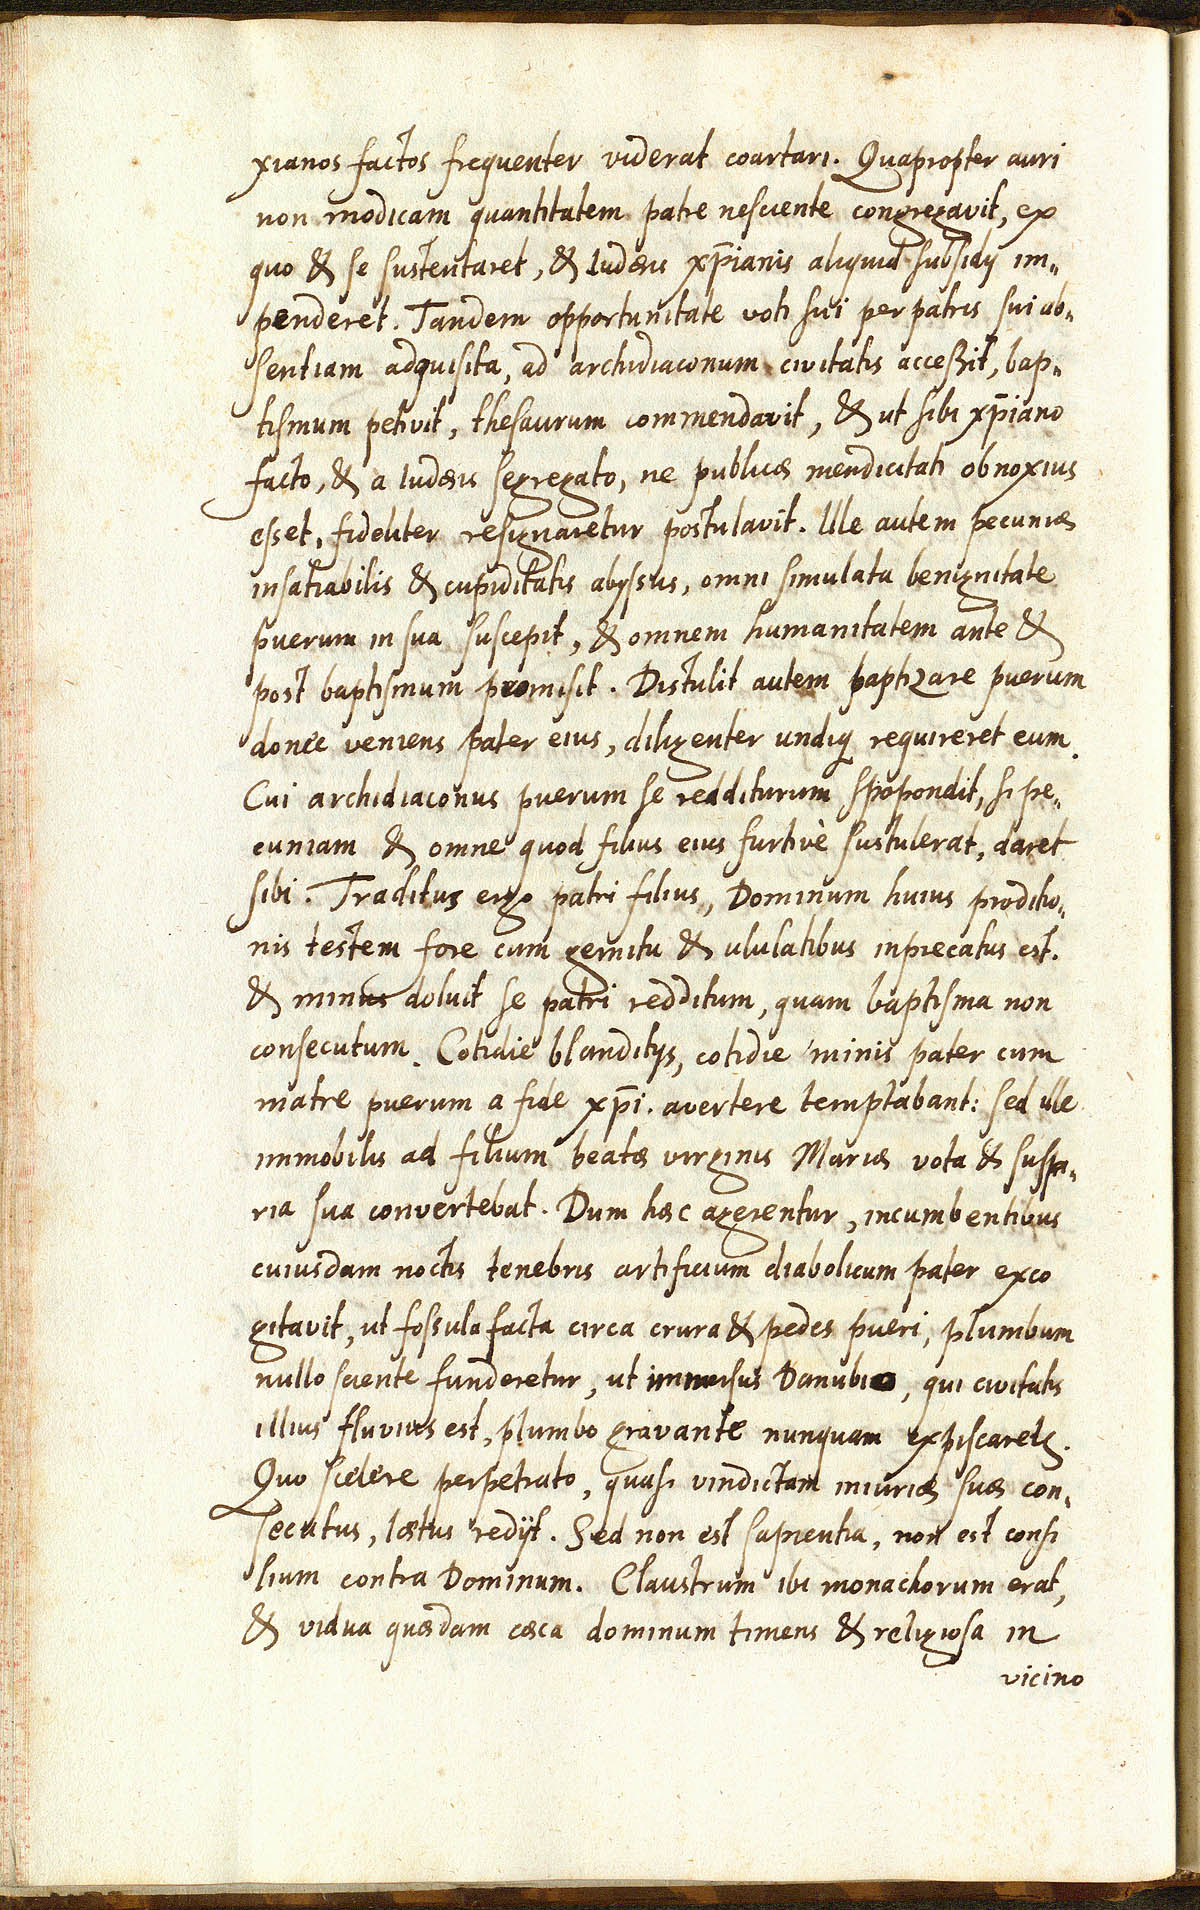 xianos factos frequenter viderat coartari. Quapropter auri
non modicam quantitatem patre nesciente congregavit, ex
quo & se sustentaret, & Iudæis xp̄ianis aliquid subsidÿ im„
penderet. Tandem opportunitate voti sui per patris sui ab„
sentiam adquisita, ad archidiaconum civitatis acceßit, bap„
tismum petivit, thesaurum commendavit, & ut sibi xp̄iano
facto, & a Iudæis segregato, ne publicæ mendicitati obnoxius
esset, fideliter resignaretur postulavit. Ille autem pecuniæ
insatiabilis & cupiditatis abyssus, omni simulata benignitate
puerum in sua suscepit, & omnem humanitatem ante &
post baptismum promisit. Distulit autem baptizare puerum
donec veniens pater eius, diligenter undiq; requireret eum.
Cui archidiaconus puerum se redditurum spopondit, si pe„
cuniam & omne quod filius eius furtivè sustulerat, daret
sibi. Traditus ergo patri filius, Dominum huius proditio„
nis testem fore cum gemitu & ululatibus inprecatus est.
& minus doluit se patri redditum, quam baptisma non
consecutum. Cotidie blanditÿs, cotidie minis pater cum
matre puerum a fide xp̄i. avertere temptabant: sed ille
immobilis ad filium beatæ virginis Mariæ vota & suspi„
ria sua convertebat. Dum hæc agerentur, incumbentibus
cuiusdam noctis tenebris artificium diabolicum pater exco
gitavit, ut fossula facta circa crura & pedes pueri, plumbum
nullo sciente funderetur, ut immersus Danubio, qui civitatis
illius fluvius est, plumbo gravante nunquam expiscaretʒ.
Quo scelere perpetrato, quasi vindictam iniuriæ suæ con„
secutus, lætus redÿt. Sed non est sapientia, non est consi
lium contra Dominum. Claustrum ibi monachorum erat,
& vidua quædam cæca dominum timens & religiosa in
vicino